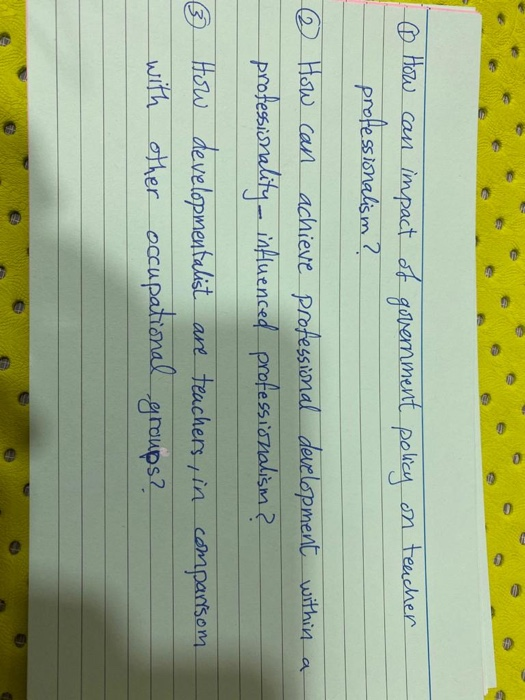 ① How can impact of government policy on teacher
professionalism?
② How can achieve professional development within a
professionality-influenced professionalism?
③ How developmentalist are teachers, in comparisom
with other occupational groups?